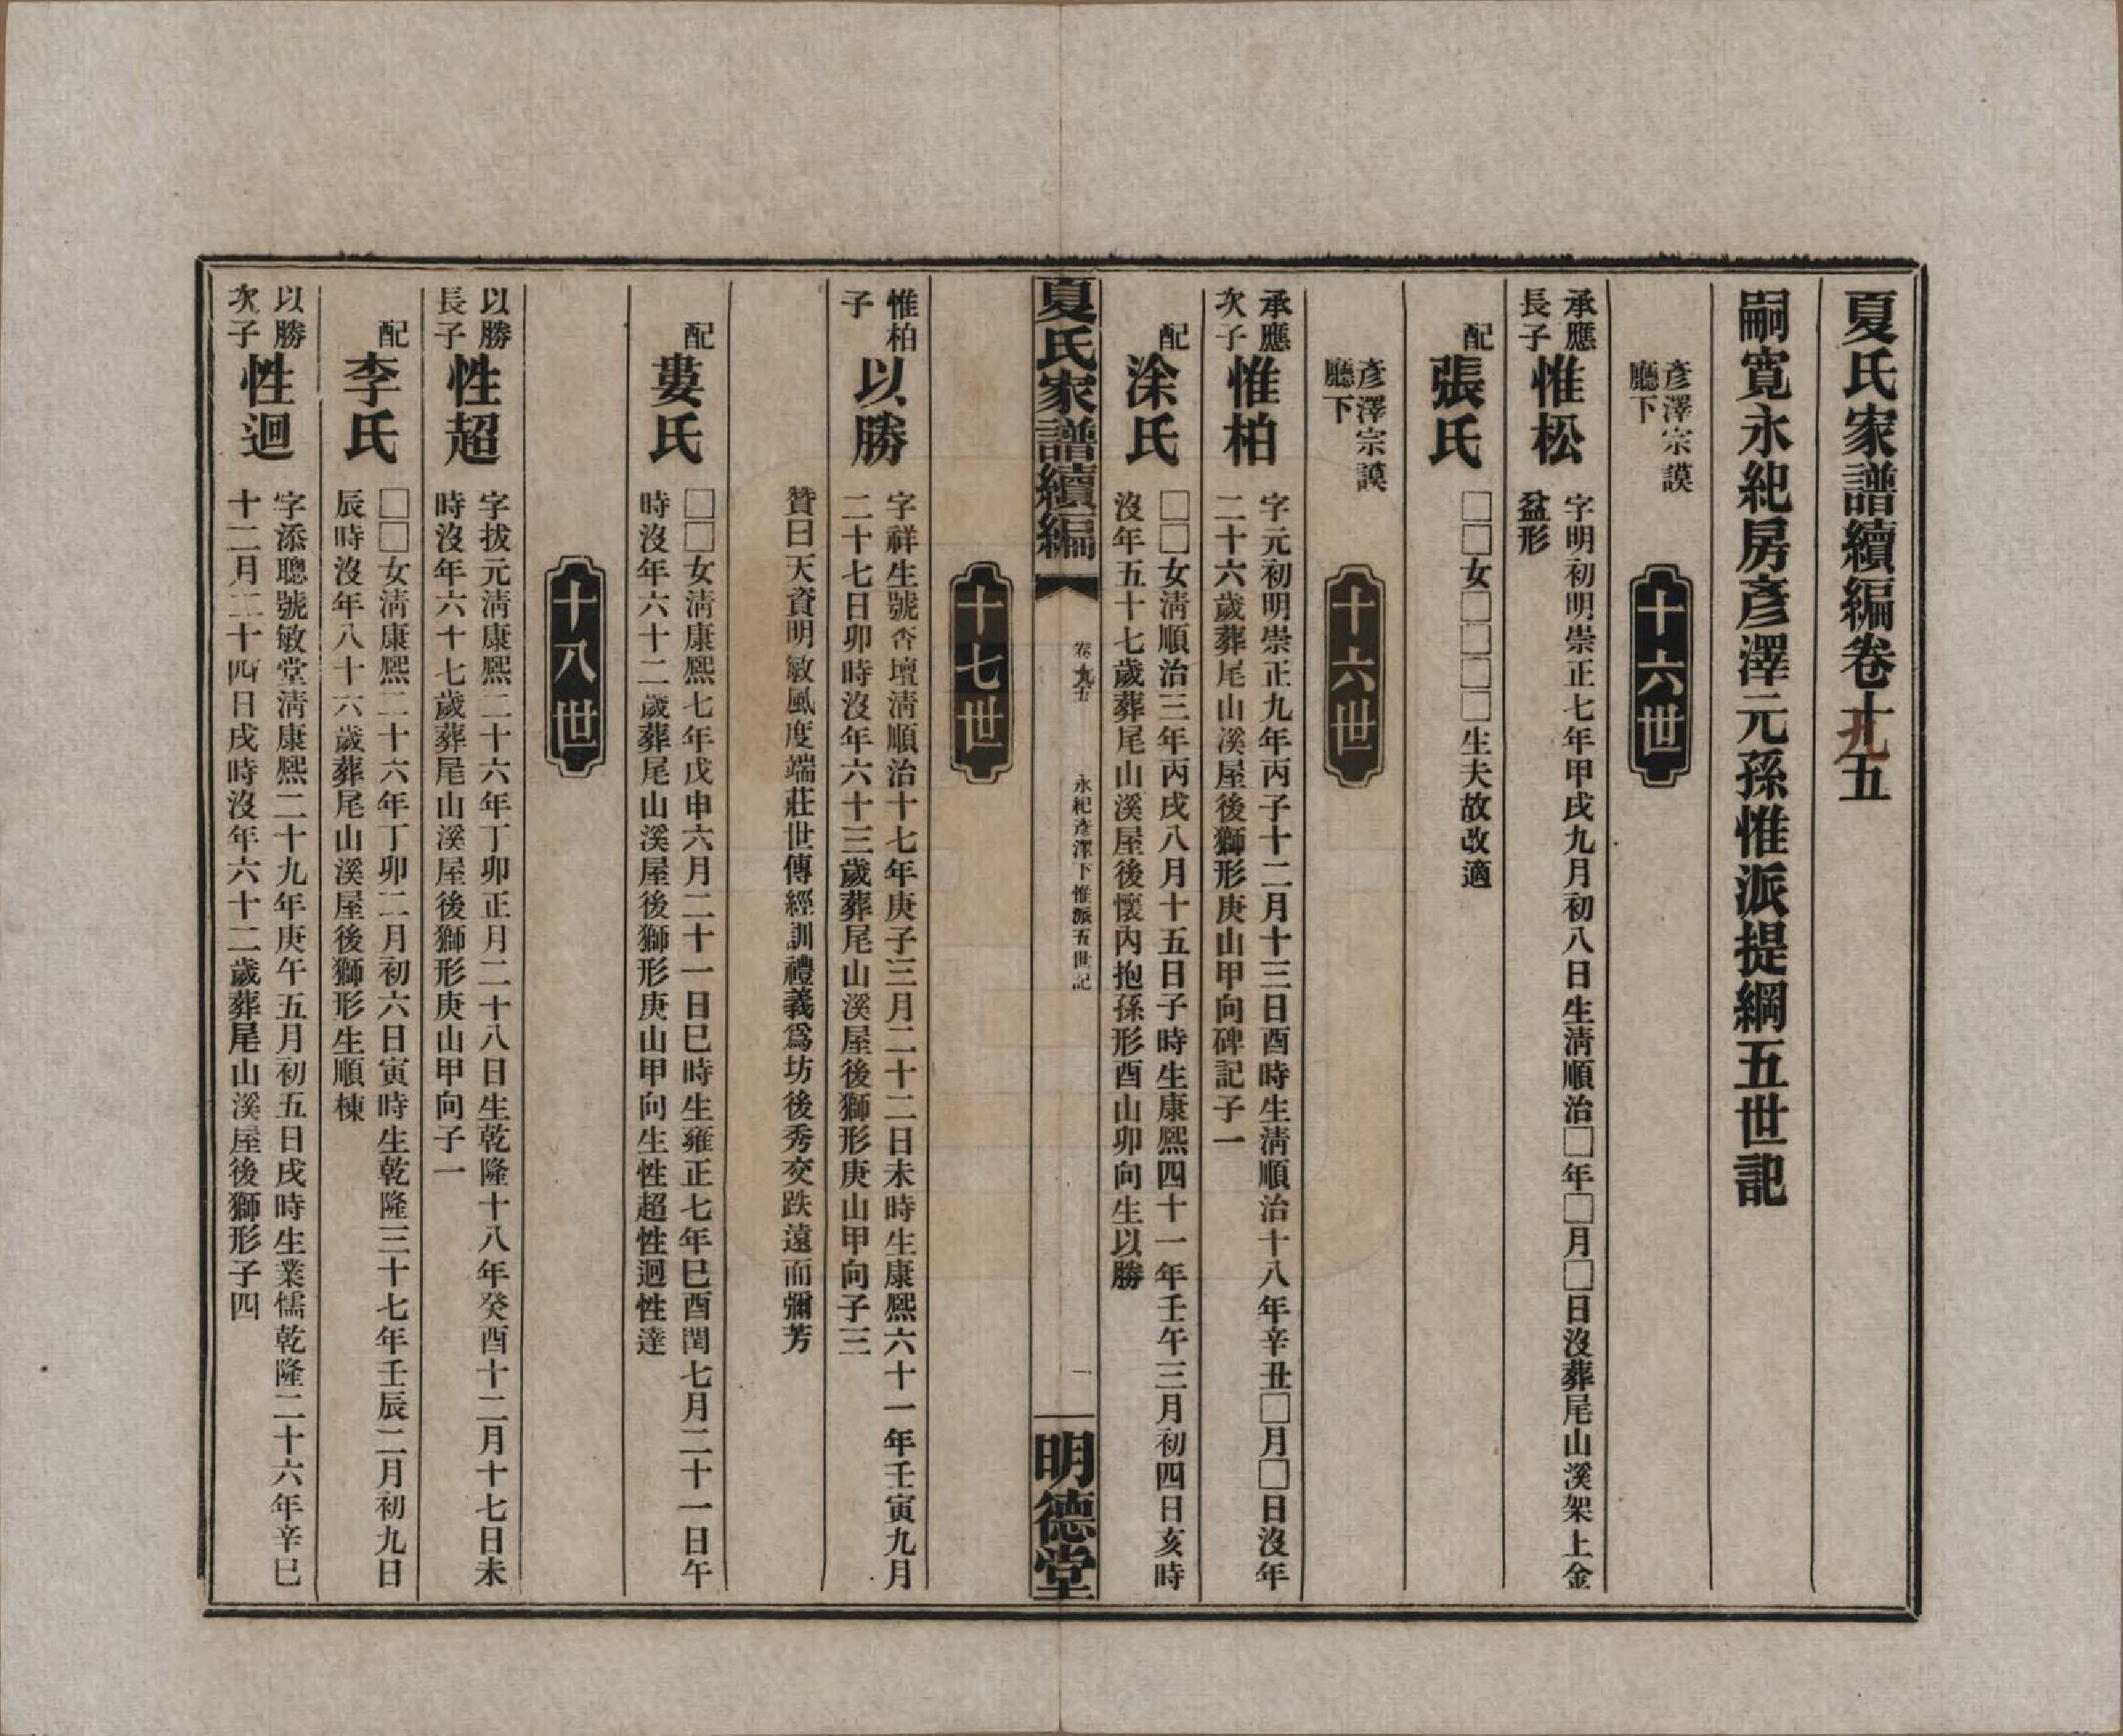 夏氏家譜續編卷十九五
嗣寬永紀房彥澤元孫惟派提綱五世記
彥澤宗謨
廳下
十六世
承應
長子
惟松
字明初明崇正七年甲戌九月初八日生淸順治□年□月□日沒葬尾山溪架上金
盆形
配
張氏
□□女□□□□生夫故改適
彥澤宗謨
廳下
十六世
承應
次子
惟柏
字元初明崇正九年丙子十二月十三日酉時生淸順治十八年辛丑□月□日沒年
二十六歲葬尾山溪屋後獅形庚山甲向碑記子一
配
涂氏
□□女淸順治三年丙戌八月十五日子時生康熙四十一年壬午三月初四日亥時
沒年五十七歲葬尾山溪屋後懷內抱孫形酉山卯向生以勝
夏氏家譜續編
卷
永紀彥澤下惟派五世記
一
明德堂
十七世
惟柏
子
以勝
字祥生號杏壇淸順治十七年庚子三月二十二日未時生康熙六十一年壬寅九月
二十七日卯時沒年六十三歲葬尾山溪屋後獅形庚山甲向子三
贊曰天資明敏風度端莊世傳經訓禮義爲坊後秀交跌遠而彌芳
配
婁氏
□□女淸康熙七年戊申六月二十一日巳時生雍正七年巳酉閏七月二十一日午
時沒年六十二歲葬尾山溪屋後獅形庚山甲向生性超性迴性達
十八世
以勝
長子
性超
字拔元淸康熙二十六年丁卯正月二十八日生乾隆十八年癸酉十二月十七日未
時沒年六十七歲葬尾山溪屋後獅形庚山甲向子一
配
李氏
□□女淸康熙二十六年丁卯二月初六日寅時生乾隆三十七年壬辰二月初九日
辰時沒年八十六歲葬尾山溪屋後獅形生順棟
以勝
次子
性迴
字添聰號敏堂淸康熙二十九年庚午五月初五日戌時生業儒乾隆二十六年辛巳
十二月二十四日戌時沒年六十二歲葬尾山溪屋後獅形子四